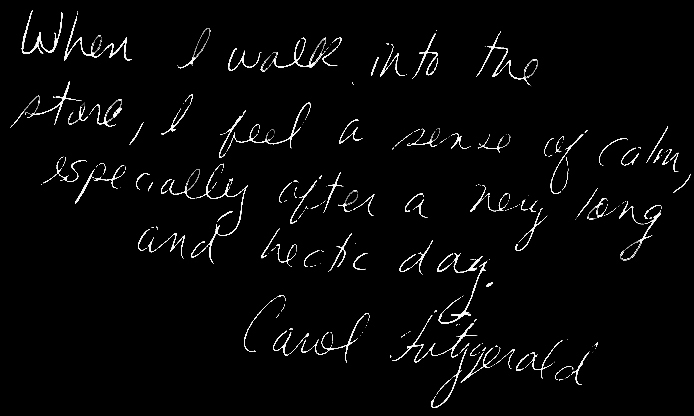 When I walk into the
store, I feel a sense of calm,
especially after a very long
and hectic day.
Carol Fitzgerald